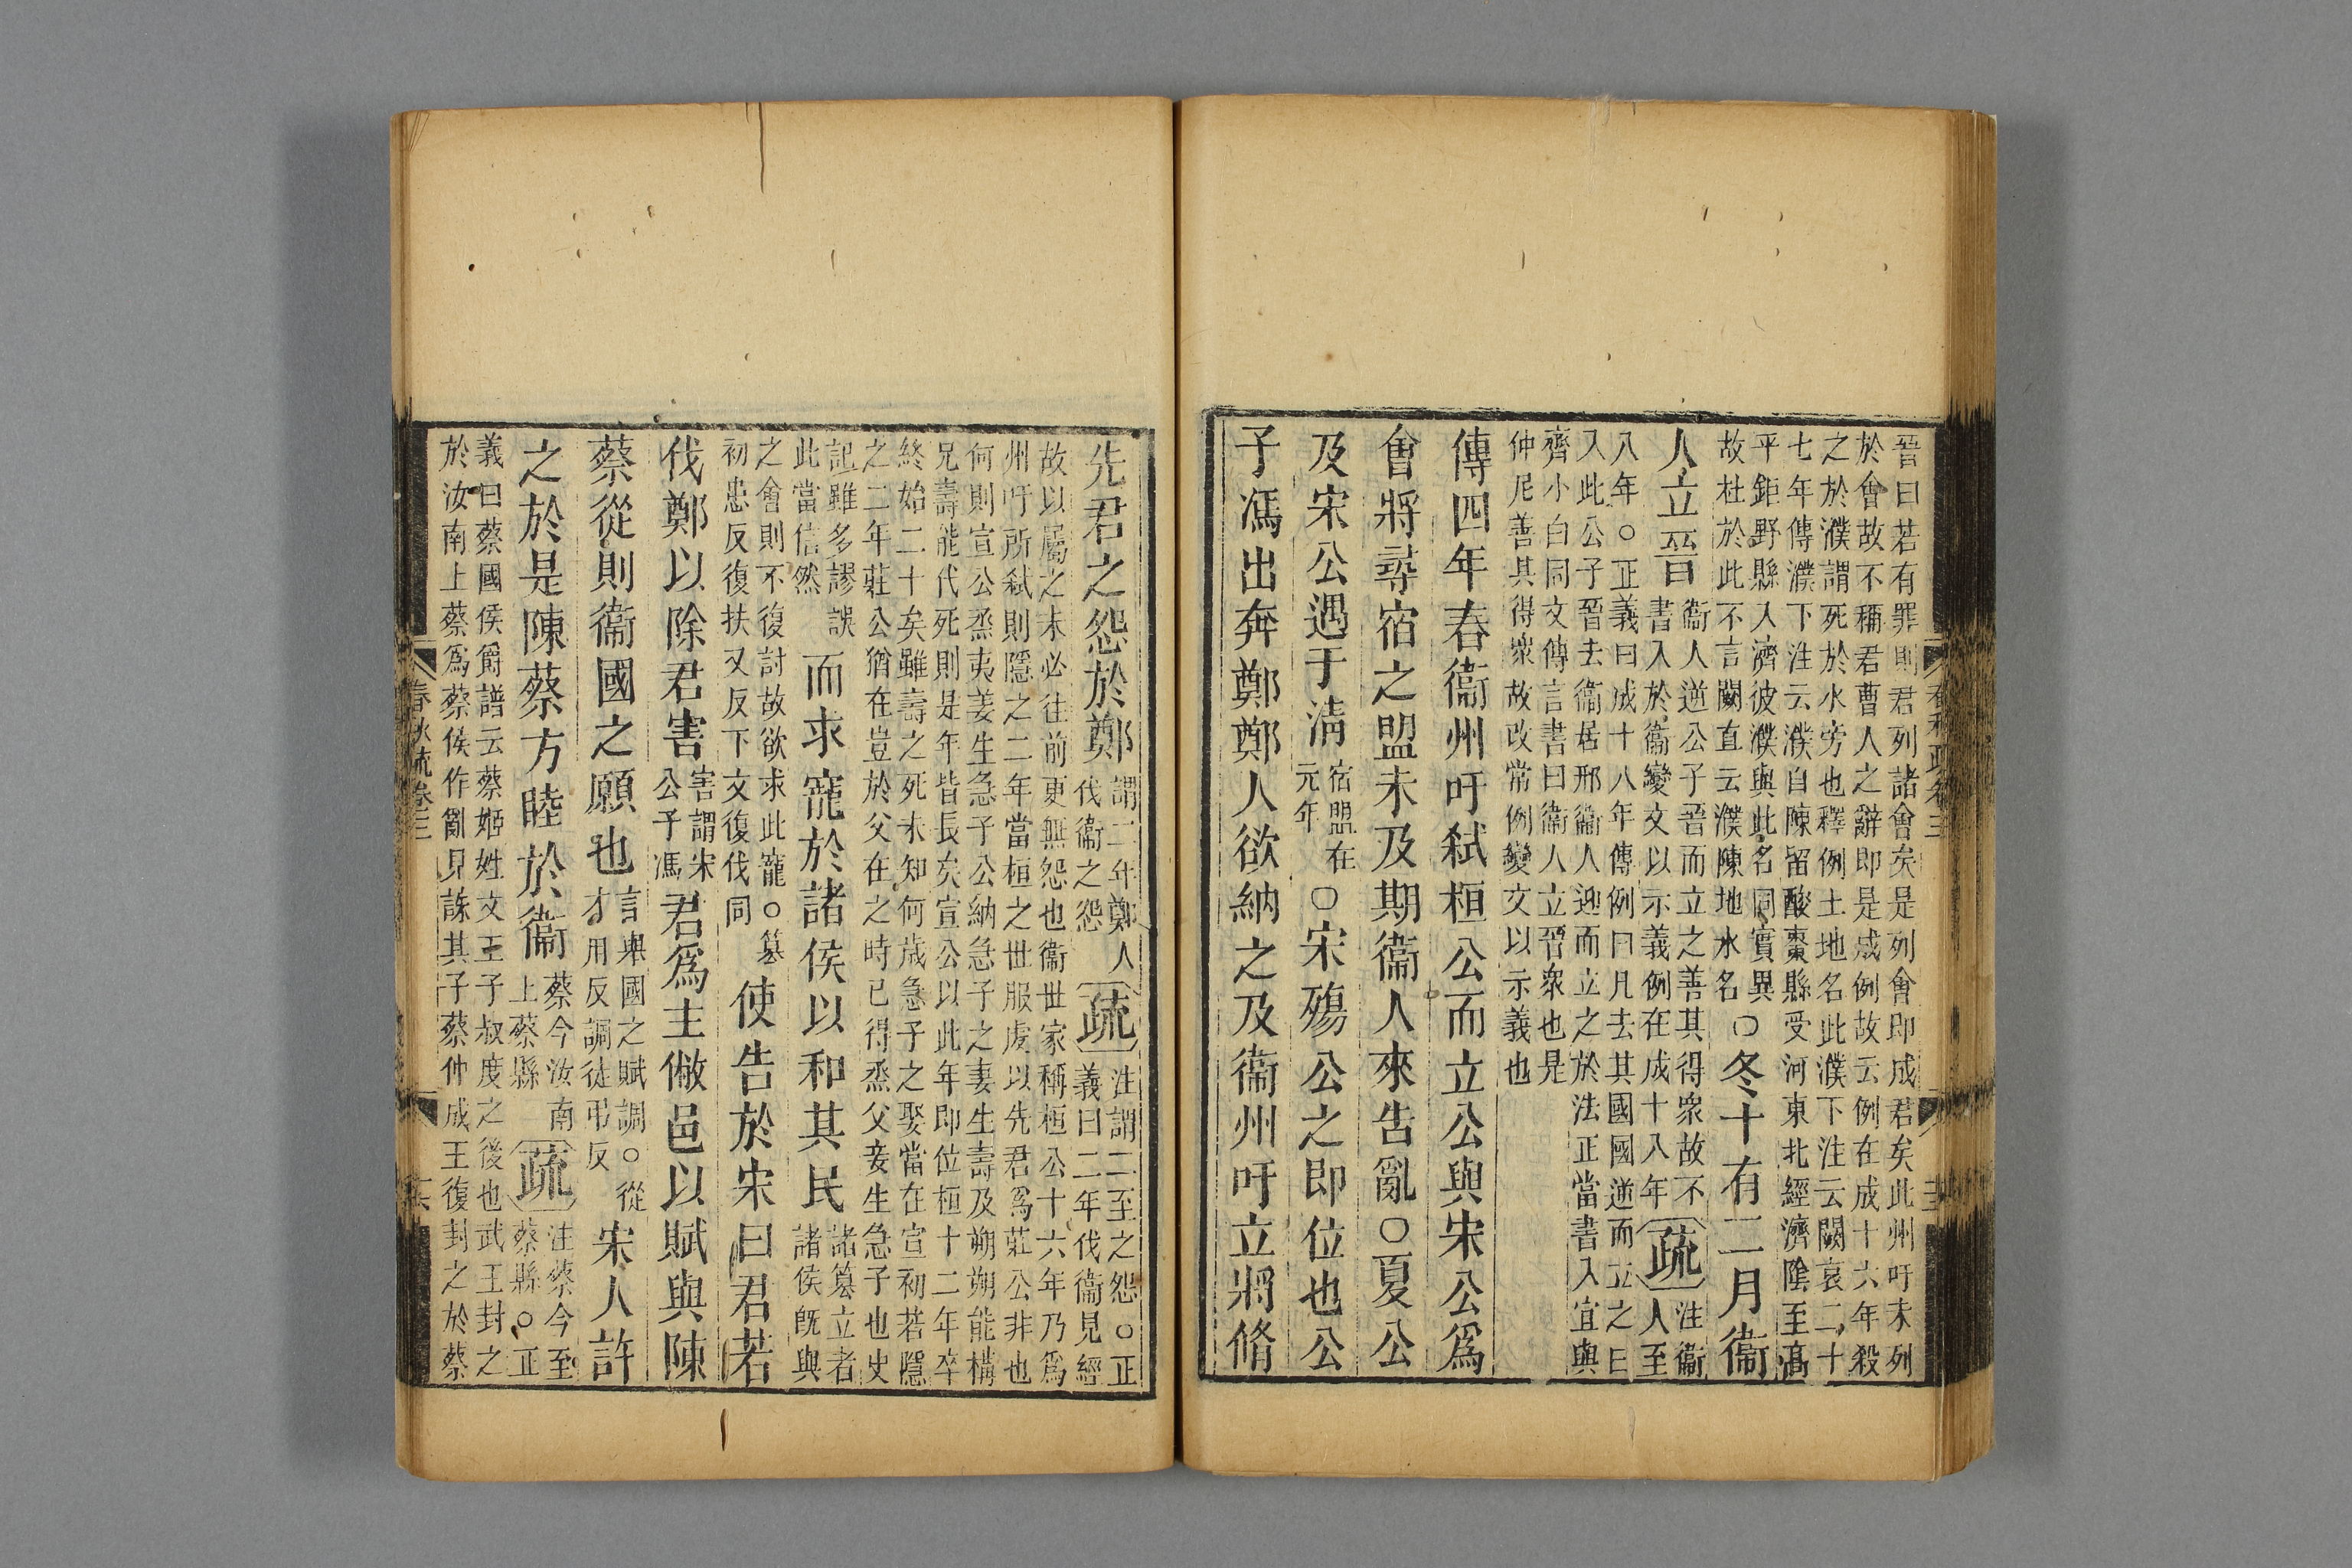 晉曰若有罪則君列諸會矣是列會即成君矣此州吁未列
於會故不稱君曹人之辭即是成例故云例在成十六年殺
之於濮謂死於水旁也釋例土地名此濮下注云闕哀二十
七年傳濮下注云濮自陳留酸棗縣受河東北經濟陰至高
平鉅野縣入濟彼濮與此名同實異
故杜於此不言闕直云濮陳地水名
○冬十有二月衞
人立晉
衞人逆公子晉而立之善其得衆故不
書入於衞變文以示義例在成十八年
疏
注衞
人至
八年○正義曰成十八年傳例曰凡去其國國逆而立之曰
入此公子晉去衞居邢衞人迎而立之於法正當書入宜與
齊小白同文傳言書曰衞人立晉衆也是
仲尼善其得衆故改常例變文以示義也
傳四年春衞州吁弑桓公而立公與宋公爲
會將尋宿之盟未及期衞人來告亂○夏公
及宋公遇于清
宿盟在
元年
○宋殤公之即位也公
子馮出奔鄭鄭人欲納之及衞州吁立將脩
先君之怨於鄭
謂二年鄭人
伐衞之怨
疏
注謂二至之怨○正
義曰二年伐衞見經
故以屬之未必往前更無怨也衞世家稱桓公十六年乃爲
州吁所弑則隱之二年當桓之世服虔以先君爲莊公非也
何則宣公烝夷姜生急子公納急子之妻生壽及朔朔能構
兄壽能代死則是年皆長矣宣公以此年即位桓十二年卒
終始二十矣雖壽之死未知何歲急子之娶當在宣初若隱
之二年莊公猶在豈於父在之時已得烝父妾生急子也史
記雖多謬誤
此當信然
而求寵於諸侯以和其民
諸篡立者
諸侯既與
之會則不復討故欲求此寵○篡
初患反復扶又反下文復伐同
使告於宋曰君若
伐鄭以除君害
害謂宋
公子馮
君爲主敝邑以賦與陳
蔡從則衞國之願也
言舉國之賦調○從
才用反調徒弔反
宋人許
之於是陳蔡方睦於衞
蔡今汝南
上蔡縣
疏
注蔡今至
蔡縣○正
義曰蔡國侯爵譜云蔡姬姓文王子叔度之後也武王封之
於汝南上蔡爲蔡侯作亂見誅其子蔡仲成王復封之於蔡
春秋疏卷三